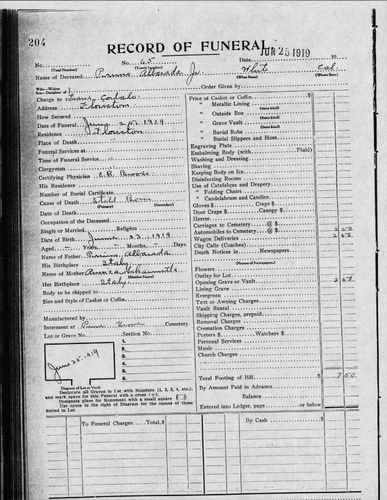 204
RECORD OF FUNERAL
No. 65 Date JUN 25 1919 19
(Total Number) (Yearly Number)
Name of Deceased Alvarada Jr. White Cal.
(What Race) (Where Born)
Wife—Widow
Son—Daughter of Order Given
Charge to Corbalo
Address Florinston
How Secured
Date of Funeral June 25, 1919
Residence Florinston
Place of Death
Funeral Services at
Time of Funeral Service
Clergyman
Certifying Physician
His Residence
Number of Burial Certificate
Cause of Death Still Born
(Primary) (Secondary)
Date of Death
Occupation of the Deceased
Single or Married Religion
Date of Birth June 23, 1919
Aged Years Months Days
Name of Father Alvarada
His Birthplace Italy
Name of Mother
(Maiden Name)
Her Birthplace Italy
Body to be shipped to
Size and Style of Casket or Coffin
Manufactured by
Interment at Cemetery
Lot or Grave No. Section No.
1.
2.
3.
4.
5.
June 25, 1919
Diagram of Lot or Vault
Designate all Graves in Lot with Numbers (1, 2, 3, 4, etc.),
and mark space for this Funeral with a cross (+).
Designate place for Monument with a small square
Use cross to right of Diagram for the names of those
buried in Lot
Price of Casket or Coffin $
" Metallic Lining
(State kind)
" Outside Box
(State kind)
" Grave Vault
(State kind)
" Burial Robe
" Burial Slippers and Hose
Engraving Plate
Embalming Body (with Fluid)
Washing and Dressing
Shaving
Keeping Body on Ice
Disinfecting Rooms
Use of Catafalque and Drapery
" Folding Chairs
" Candelabrum and Candles
Gloves $ Crape $
Door Crape $ Canopy $
Hearse
Carriages to Cemetery @ $
Automobiles to Cemetery @ $
Wagon Deliveries
City Calls (Coaches)
Death Notices in Newspapers
(Names of Newspapers)
Flowers
Outlay for Lot
Opening Grave or Vault
Lining Grave
Evergreen
Tent or Awning Charges
Vault Rental
Shipping Charges, prepaid
Removal Charges
Cremation Charges
Porters $ Watchers $
Personal Services
Music
Church Charges
Total Footing of Bill $ 7 50
By Amount Paid in Advance
Balance
Entered into Ledger, page or below
To Funeral Charges Total, $ By Cash $